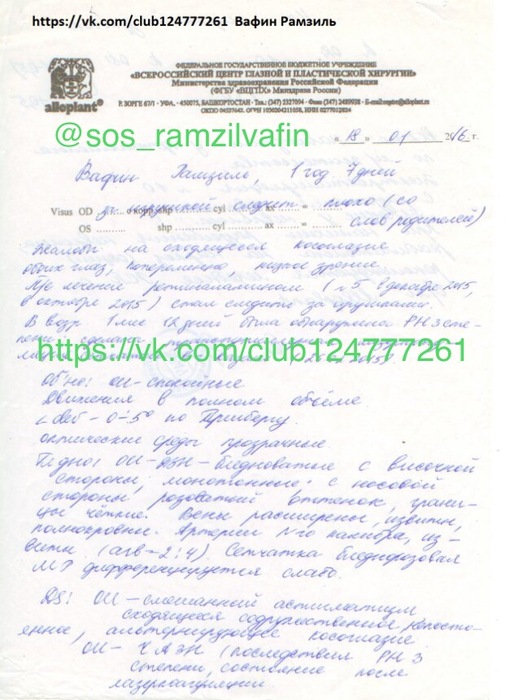 https://vk.com/club124777261 Вафин Рамзиль
ФЕДЕРАЛЬНОЕ ГОСУДАРСТВЕННОЕ БЮДЖЕТНОЕ УЧРЕЖДЕНИЕ
«ВСЕРОССИЙСКИЙ ЦЕНТР ГЛАЗНОЙ И ПЛАСТИЧЕСКОЙ ХИРУРГИИ»
Министерства здравоохранения Российской Федерации
(ФГБУ «ВЦГПХ» Минздрава России)
alloplant®
Р. ЗОРГЕ 67/1 · УФА, · 450075, БАШКОРТОСТАН
@sos_ramzilvafin
«18» 01 2016 г.
Вафин Рамзиль, 1 год 7 дней
Visus OD за игрушкой следит плохо (со
OS shp cyl ax = слов родителей)
Жалобы на сходящееся косоглазие
обоих глаз, попеременно, низкое зрение.
После лечения ретиналамином (№5 в декабре 2015,
в октябре 2015) стал следить за игрушками.
В возр. 1 мес 12 дней была обнаружена РН 3 сте-
https://vk.com/club124777261
Об-но: OU - спокойные
Движения в полном объёме
∠ dev - 0 ÷ 5° по Гиршбергу.
оптические среды прозрачные
Гл. дно: OU - ДЗН - бледноватые с височной
стороны, монотонные; с носовой
стороны розоватый оттенок, грани-
цы чёткие. Вены расширены, извиты,
полнокровны. Артерии N-го калибра, из-
виты. (a/в - 2:4). Сетчатка бледнорозовая
МР дифференцируется слабо.
DS: OU - смешанный астигматизм
сходящееся содружественное непосто-
янное, альтернирующее косоглазие.
OU - ЧАЗН (последствия РН 3
степени, состояние после
лазеркоагуляции